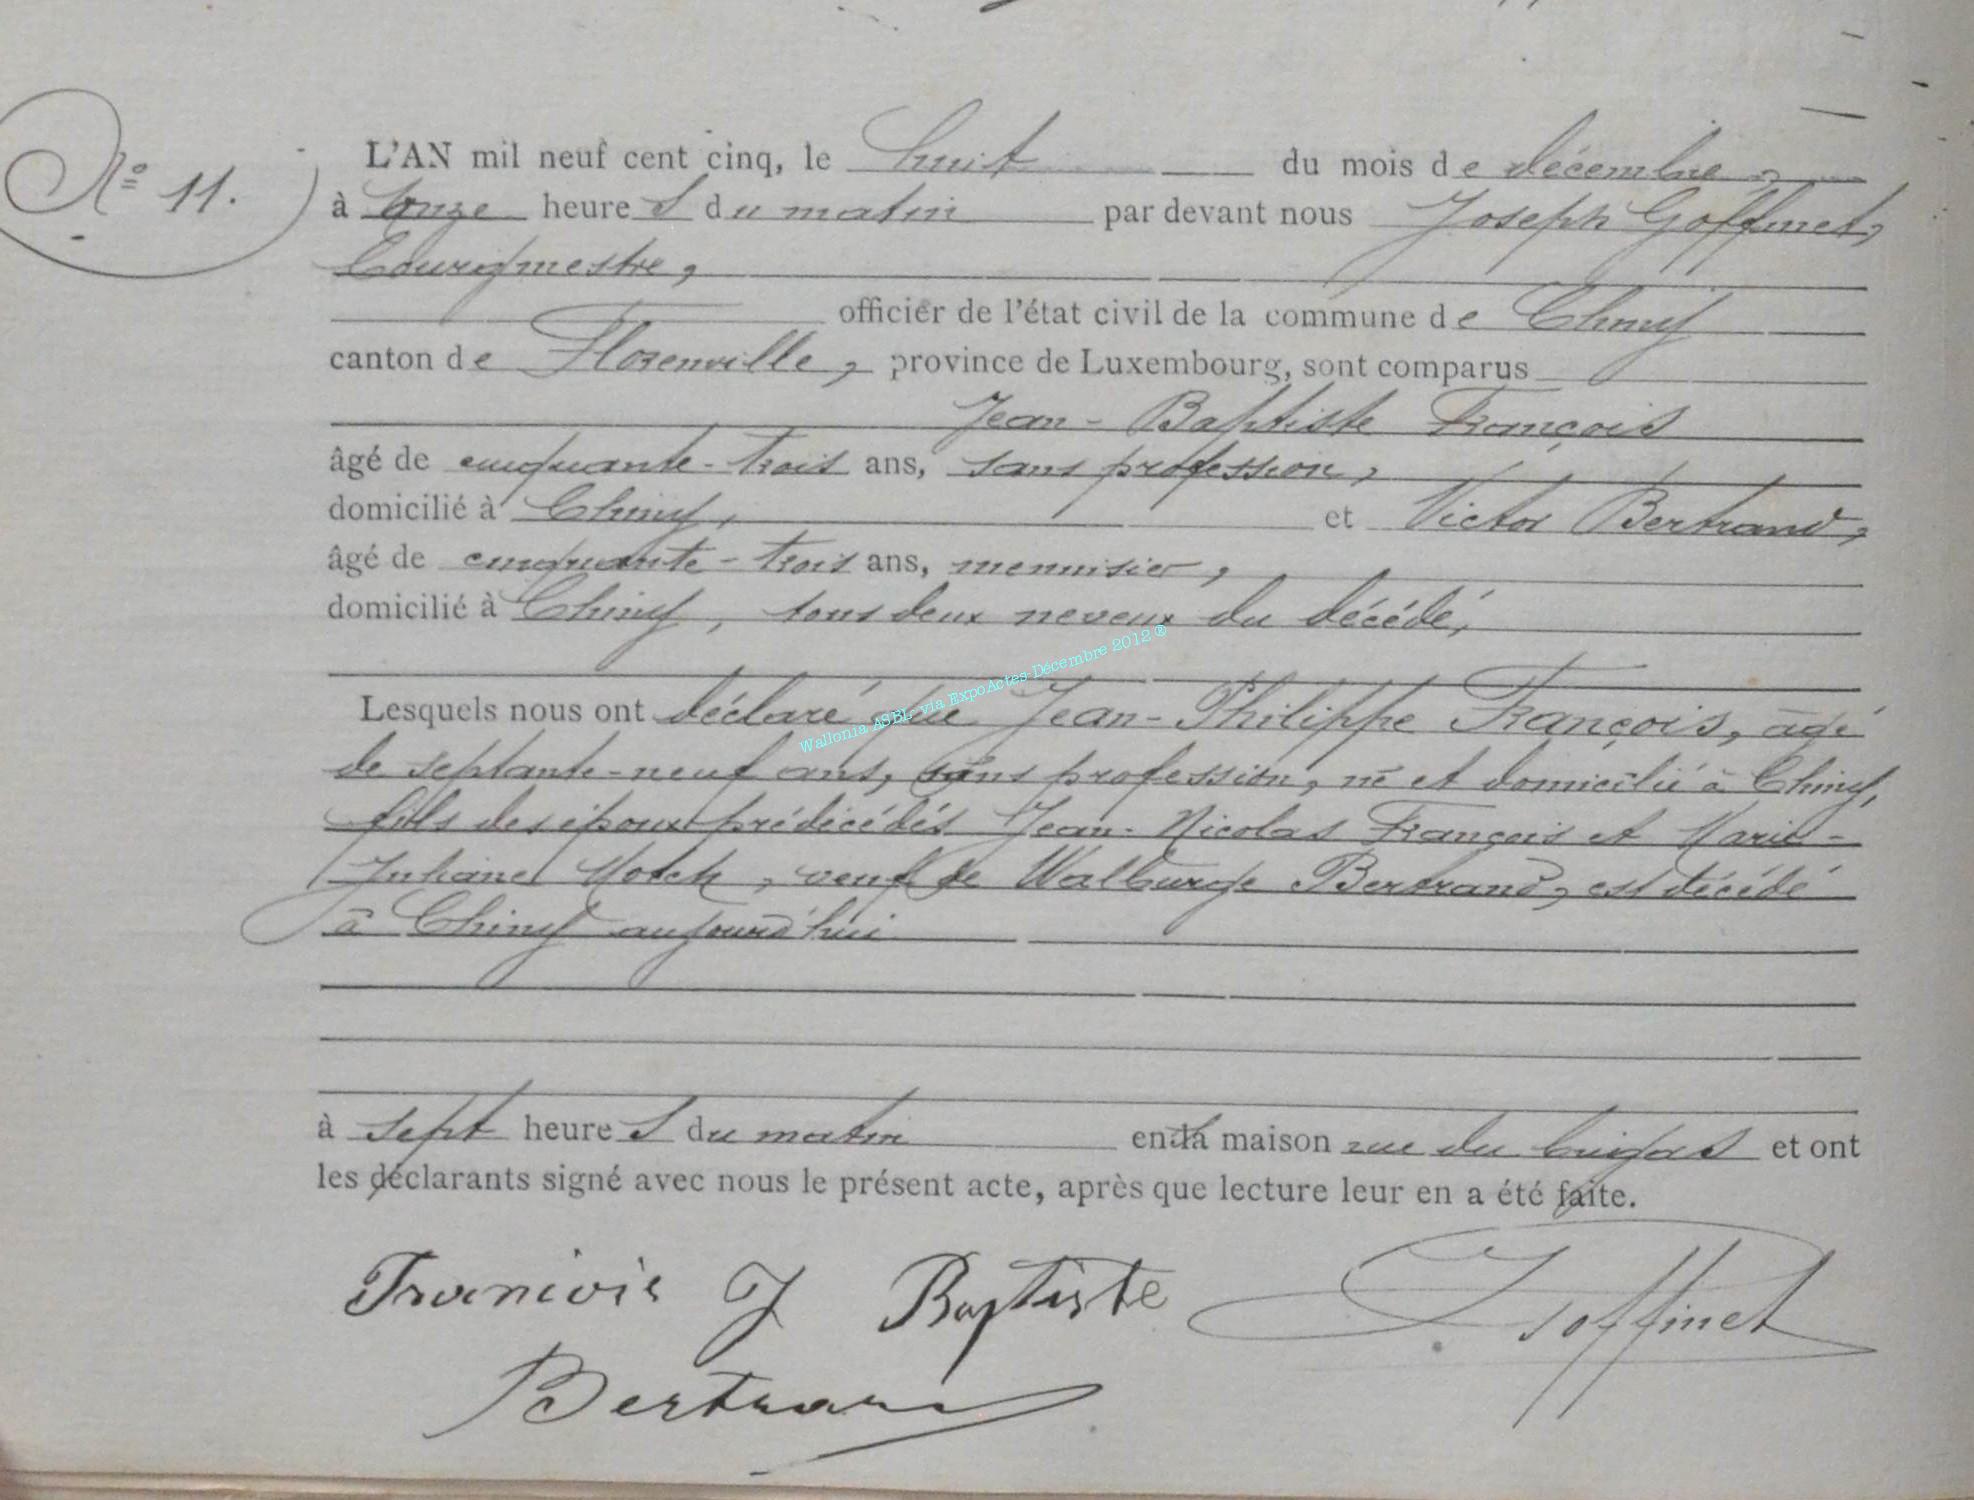 N° 11.
L'AN mil neuf cent cinq, le huit du mois de décembre,
à onze heures du matin par devant nous Joseph Goffinet,
bourgmestre,
officier de l'état civil de la commune de Chiny
canton de Florenville, province de Luxembourg, sont comparus
Jean-Baptiste François
âgé de cinquante-trois ans, sans profession,
domicilié à Chiny, et Victor Bertrand,
âgé de cinquante-trois ans, menuisier,
domicilié à Chiny, tous deux neveux du décédé,
Lesquels nous ont déclaré que Jean-Philippe François, âgé
de septante-neuf ans, sans profession, né et domicilié à Chiny,
fils des époux prédécédés Jean-Nicolas François et Marie-
Juliane, veuf de Walburge Bertrand, est décédé
à Chiny aujourd'hui
à sept heures du matin en sa maison rue du et ont
les déclarants signé avec nous le présent acte, après que lecture leur en a été faite.
François J Baptiste
Goffinet
Bertrand
Wallonia ASBL via ExpoActes Décembre 2012 ®